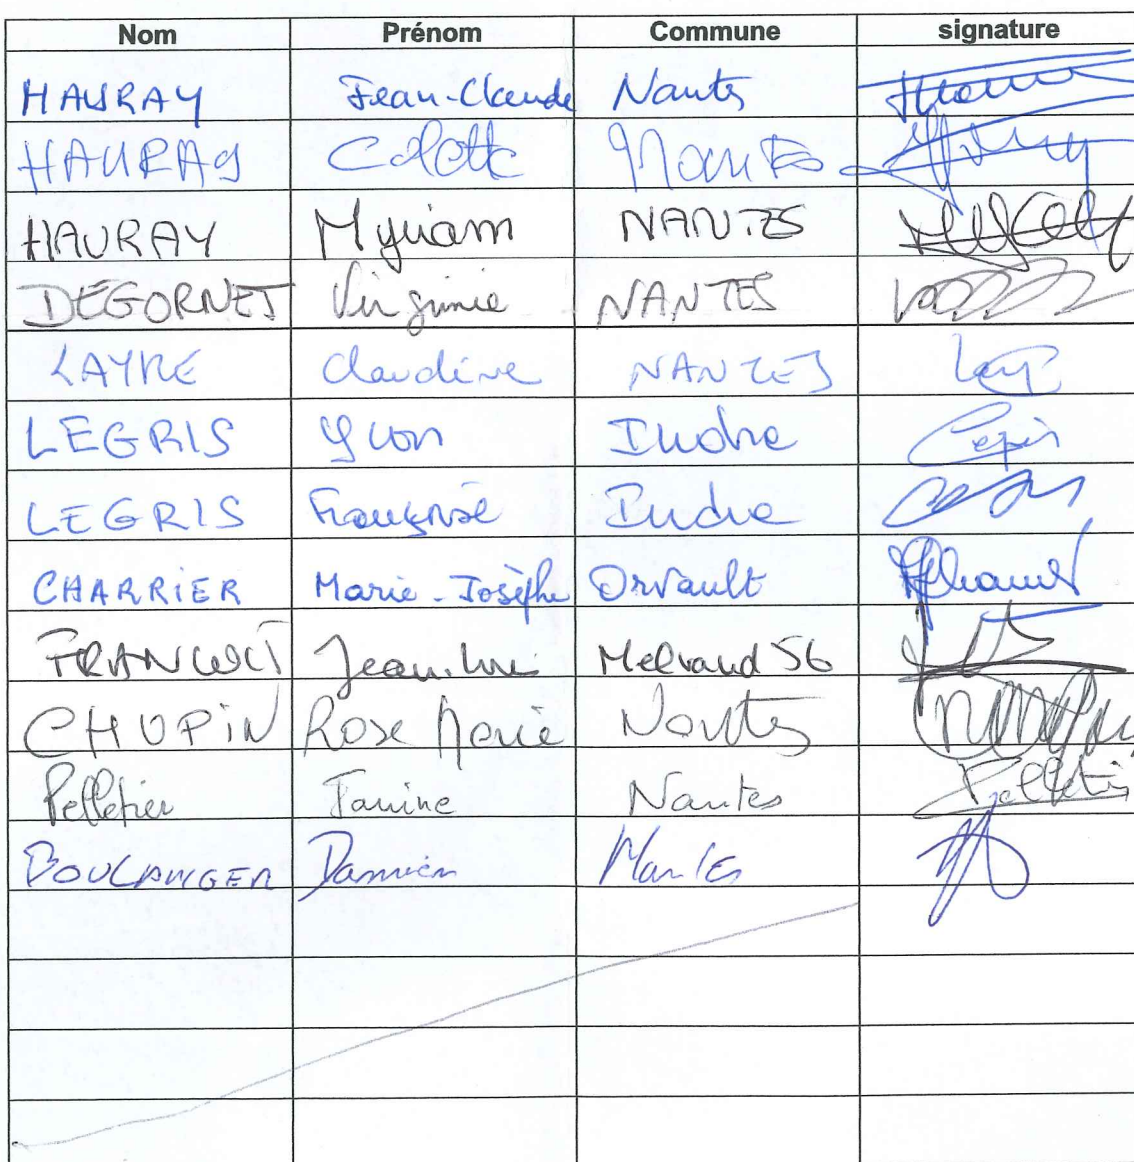 Nom Prénom Commune signature
HAURAY Jean-Claude Nantes
HAURAY Colette Nantes
HAURAY Myriam NANTES
DEGORNET Virginie NANTES
LAYRE Claudine NANTES
LEGRIS Yvon Indre
LEGRIS Françoise Indre
CHARRIER Marie-Josèphe Orvault
Melrand 56
CHUPIN Rose Marie Nantes
Pelletier Janine Nantes Pelletier
BOULANGER Damien Nantes